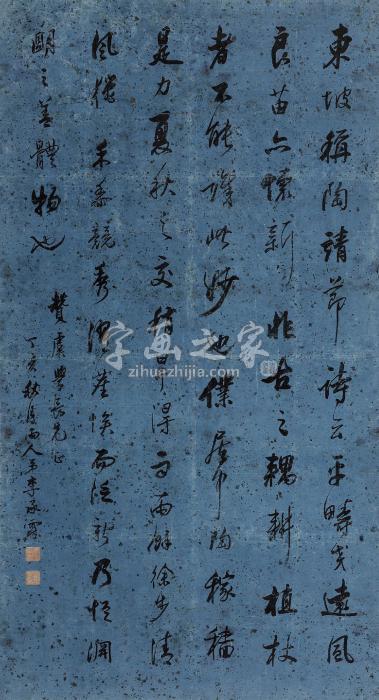 東坡稱陶靖節詩云平疇交遠風
良苗亦懷新非古之耦耕植杖
者不能識此妙也僕居中陶稼穡
是力夏秋之交稍旱得雨雨餘徐步清
風獵禾黍競秀濯塵埃而泛新乃悟淵
明之善體物也
贊虞學長兄正
丁亥秋弟李承霖
字画之家
www.zihuazhijia.com